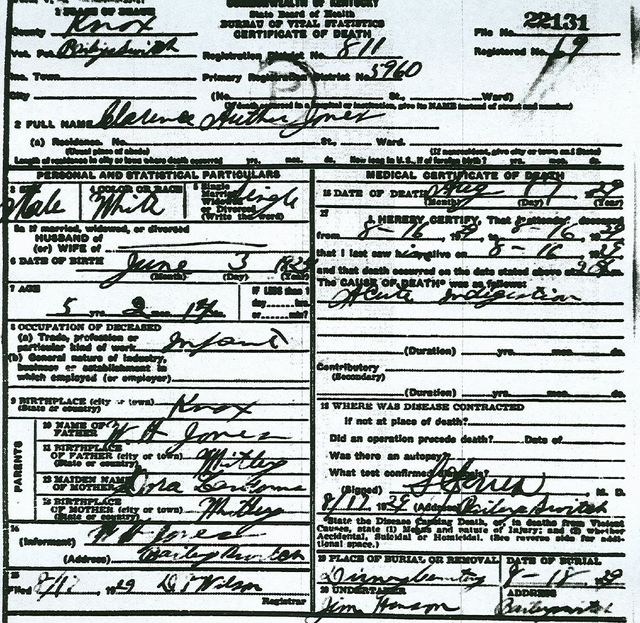 COMMONWEALTH OF KENTUCKY
State Board of Health
BUREAU OF VITAL STATISTICS
CERTIFICATE OF DEATH
1 PLACE OF DEATH
County Knox
File No. 22131
Vot. Pct. Registration District No. 811
Registered No. 69
Inc. Town Primary Registration District No. 5960
City (No. St., Ward)
(If death occurred in a hospital or institution, give its NAME instead of street and number)
2 FULL NAME Clarence Arthur Jones
(a) Residence. No. St., Ward.
(Usual place of abode) (If nonresident, give city or town and State)
Length of residence in city or town where death occurred yrs. mos. ds. How long in U. S., if of foreign birth? yrs. mos. ds.
PERSONAL AND STATISTICAL PARTICULARS
3 SEX Male
4 COLOR OR RACE White
5 Single Married Widowed or Divorced (Write the word) Single
5a If married, widowed, or divorced
HUSBAND of
(or) WIFE of
6 DATE OF BIRTH June 3 1924
(Month) (Day) (Year)
7 AGE
5 yrs. 2 mos. 14 ds.
IF LESS than 1 day hrs. or min.?
8 OCCUPATION OF DECEASED
(a) Trade, profession or particular kind of work Infant
(b) General nature of industry, business or establishment in which employed (or employer)
9 BIRTHPLACE (city or town) (State or country) Knox
PARENTS
10 NAME OF FATHER W H Jones
11 BIRTHPLACE OF FATHER (city or town) (State or country) Whitley
12 MAIDEN NAME OF MOTHER
13 BIRTHPLACE OF MOTHER (city or town) (State or country) Whitley
14 (Informant) W H Jones
(Address) Bailey Switch
15 Filed 1929 Wilson
Registrar
MEDICAL CERTIFICATE OF DEATH
16 DATE OF DEATH Aug 17 1929
(Month) (Day) (Year)
17 I HEREBY CERTIFY, That I attended deceased
from 8-16, 1929, to 8-16, 1929,
that I last saw him alive on 8-16, 1929,
and that death occurred on the date stated above at
The CAUSE OF DEATH* was as follows:
Acute Indigestion
(Duration) yrs. mos. ds.
Contributory
(Secondary)
(Duration) yrs. mos. ds.
18 WHERE WAS DISEASE CONTRACTED
If not at place of death?
Did an operation precede death? Date of
Was there an autopsy?
What test confirmed diagnosis?
(Signed) M. D.
8/17 1929 (Address) Bailey Switch
*State the Disease Causing Death, or, in deaths from Violent Causes, state (1) Means and nature of Injury; and (2) whether Accidental, Suicidal or Homicidal. (See reverse side for additional space.)
19 PLACE OF BURIAL OR REMOVAL
DATE OF BURIAL 8-18 29
20 UNDERTAKER Jim Henson
ADDRESS Bailey Switch